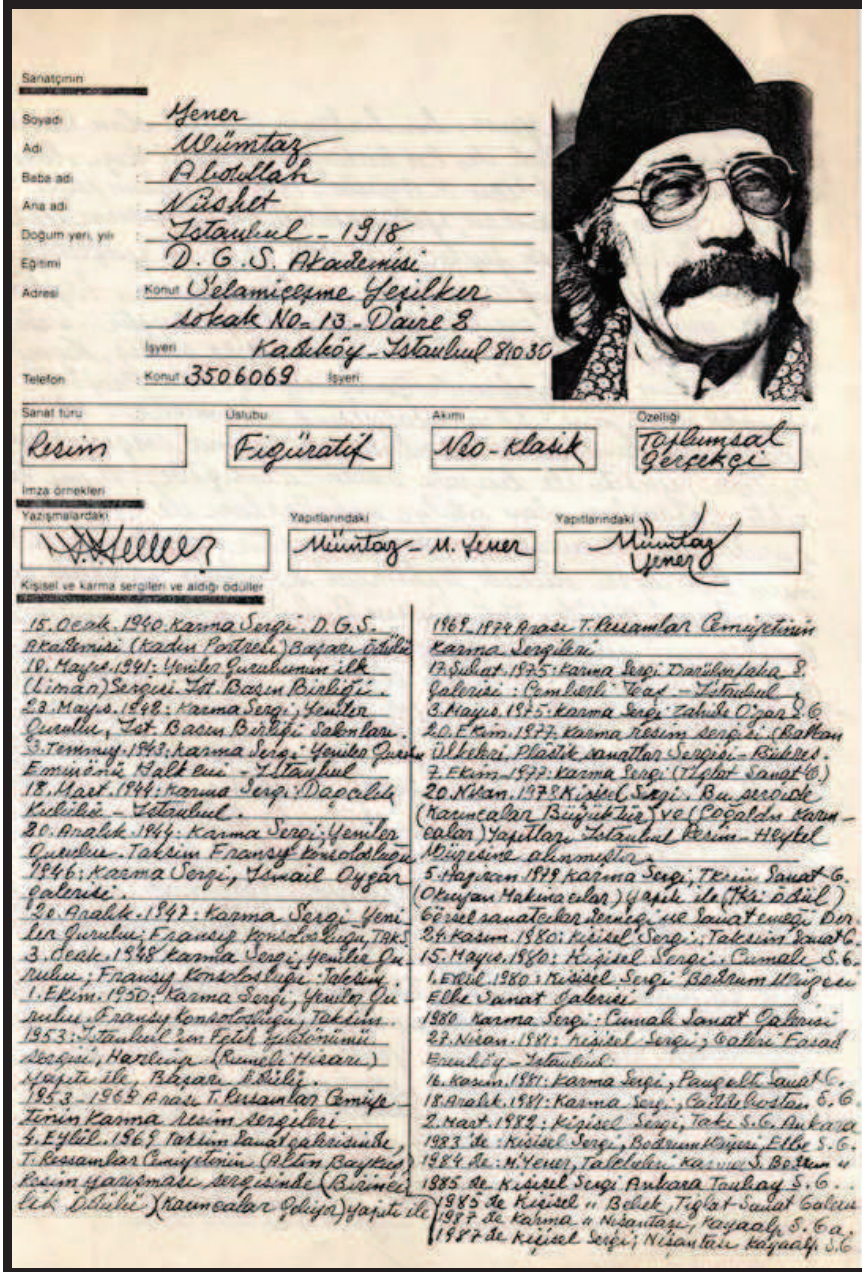 Sanatçının
Soyadı : Yener
Adı : Mümtaz
Baba adı : Abdullah
Ana adı : Nüshet
Doğum yeri, yılı : İstanbul - 1918
Eğitimi : D. G. S. Akademisi
Adresi : Konut Selamiçeşme Yeşilker
sokak No- 13 - Daire 8
İşyeri Kadıköy - İstanbul 81030
Telefon : Konut 3506069 İşyeri
Sanat türü Üslubu Akımı Özelliği
Resim Figüratif Neo-Klasik Toplumsal
gerçekçi
İmza örnekleri
Yazışmalardaki Yapıtlarındaki Yapıtlarındaki
Mümtaz - M. Yener Mümtaz
Yener
Kişisel ve karma sergileri ve aldığı ödüller
15. Ocak. 1940. Karma Sergi. D.G.S.
Akademisi (Kadın Portresi) Başarı Ödülü
10. Mayıs. 1941: Yeniler Gurubunun ilk
(Liman) Sergisi. İst. Basın Birliği.
23. Mayıs. 1942: Karma Sergi, Yeniler
Gurubu, İst. Basın Birliği Salonları.
3. Temmuz. 1943: Karma Sergi: Yeniler Gurubu
Eminönü Halk evi - İstanbul
18. Mart. 1944: Karma Sergi: Dağcılık
Kulübü - İstanbul.
20. Aralık. 1944: Karma Sergi: Yeniler
Gurubu. Taksim Fransız Konsolosluğu
1946: Karma Sergi, İsmail Oygar
galerisi.
20. Aralık. 1947: Karma Sergi Yeni
ler Gurubu: Fransız Konsolosluğu, TAKS.
3. Ocak. 1948 Karma Sergi, Yeniler Gu-
rubu; Fransız Konsolosluğu: Taksim.
1. Ekim. 1950: Karma Sergi, Yeniler Gu-
rubu. Fransız Konsolosluğu, Taksim.
1953: İstanbul'un Fetih Yıldönümü
Sergisi, (Rumeli Hisarı)
Yapıtı ile, Başarı Ödülü.
1953-1969 Arası T. Ressamlar Cemiye-
tinin Karma resim sergileri
4. Eylül. 1969 Taksim Sanat galerisinde,
T. Ressamlar Cemiyetinin (Altın Baykuş)
Resim yarışması sergisinde (Birinci
lik Ödülü) (Karıncalar Geliyor) yapıtı ile
1969-1974 Arası T. Ressamlar Cemiyetinin
Karma Sergileri
17. Şubat. 1975: Karma Sergi Darüşşafaka S.
Galerisi: Çemberli Taş - İstanbul,
3. Mayıs. 1975: Karma Sergi Zahide Özar S.G
20. Ekim. 1977: Karma resim sergisi (Balkan
Ülkeleri Plastik sanatlar Sergisi - Bükreş.
7. Ekim - 1977: Karma Sergi (Tiglat Sanat G)
20. Nisan. 1978 Kişisel Sergi. Bu sergide
(Karıncalar Büyüktür) ve (Çoğaldı Karın-
calar) Yapıtları İstanbul Resim - Heykel
Müzesine alınmıştır.
5. Haziran 1979 Karma Sergi, Sanat G.
(Okuyan Makinacılar) yapıtı ile (İki ödül)
Görsel sanatçılar derneği ve Sanat emeği Der.
24. Kasım. 1980: Kişisel Sergi: Taksim Sanat G.
15. Mayıs. 1980: Kişisel Sergi. Cumalı S.G.
1. Eylül. 1980: Kişisel Sergi Bodrum Müzesi
Elbe Sanat Galerisi
1980 Karma Sergi: Cumalı Sanat Galerisi
27. Nisan. 1981: Kişisel Sergi; Galeri Fasad
Erenköy - İstanbul.
16. Kasım. 1981: Karma Sergi, Pangaltı Sanat G.
18. Aralık. 1981: Karma Sergi, Caddebostan S.G.
2. Mart. 1982: Kişisel Sergi, S.G. Ankara
1983 de: Kişisel Sergi, Bodrum Müzesi, Elbe S.G.
1984 de: M. Yener, Talebeleri Karma S. Bodrum "
1985 de Kişisel Sergi Ankara S.G.
1985 de Kişisel " Bebek, Tiglat Sanat Galerisi
1987 de Karma " Nişantaşı, Kayaalp S.Ga.
1987 de Kişisel Sergi; Nişantaşı Kayaalp S.G